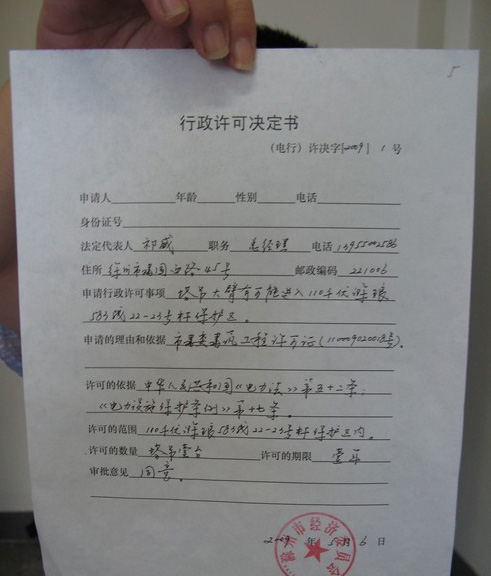 5
行政许可决定书
(电行)许决字[2009] 1 号
申请人 年龄 性别 电话
身份证号
法定代表人 祁威 职务 总经理 电话
住所 徐州市建国西路45号 邮政编码 221006
申请行政许可事项 塔吊大臂有可能进入110千伏滁琅
583线22-23号杆保护区.
申请的理由和依据 市建委建筑工程许可证(110009020018号).
许可的依据 中华人民共和国《电力法》第五十二条.
《电力设施保护条例》第十七条.
许可的范围 110千伏滁琅583线22-23号杆保护区内.
许可的数量 塔吊壹台 许可的期限 壹年
审批意见 同意.
2009 年 5 月 6 日
滁州市经济委员会